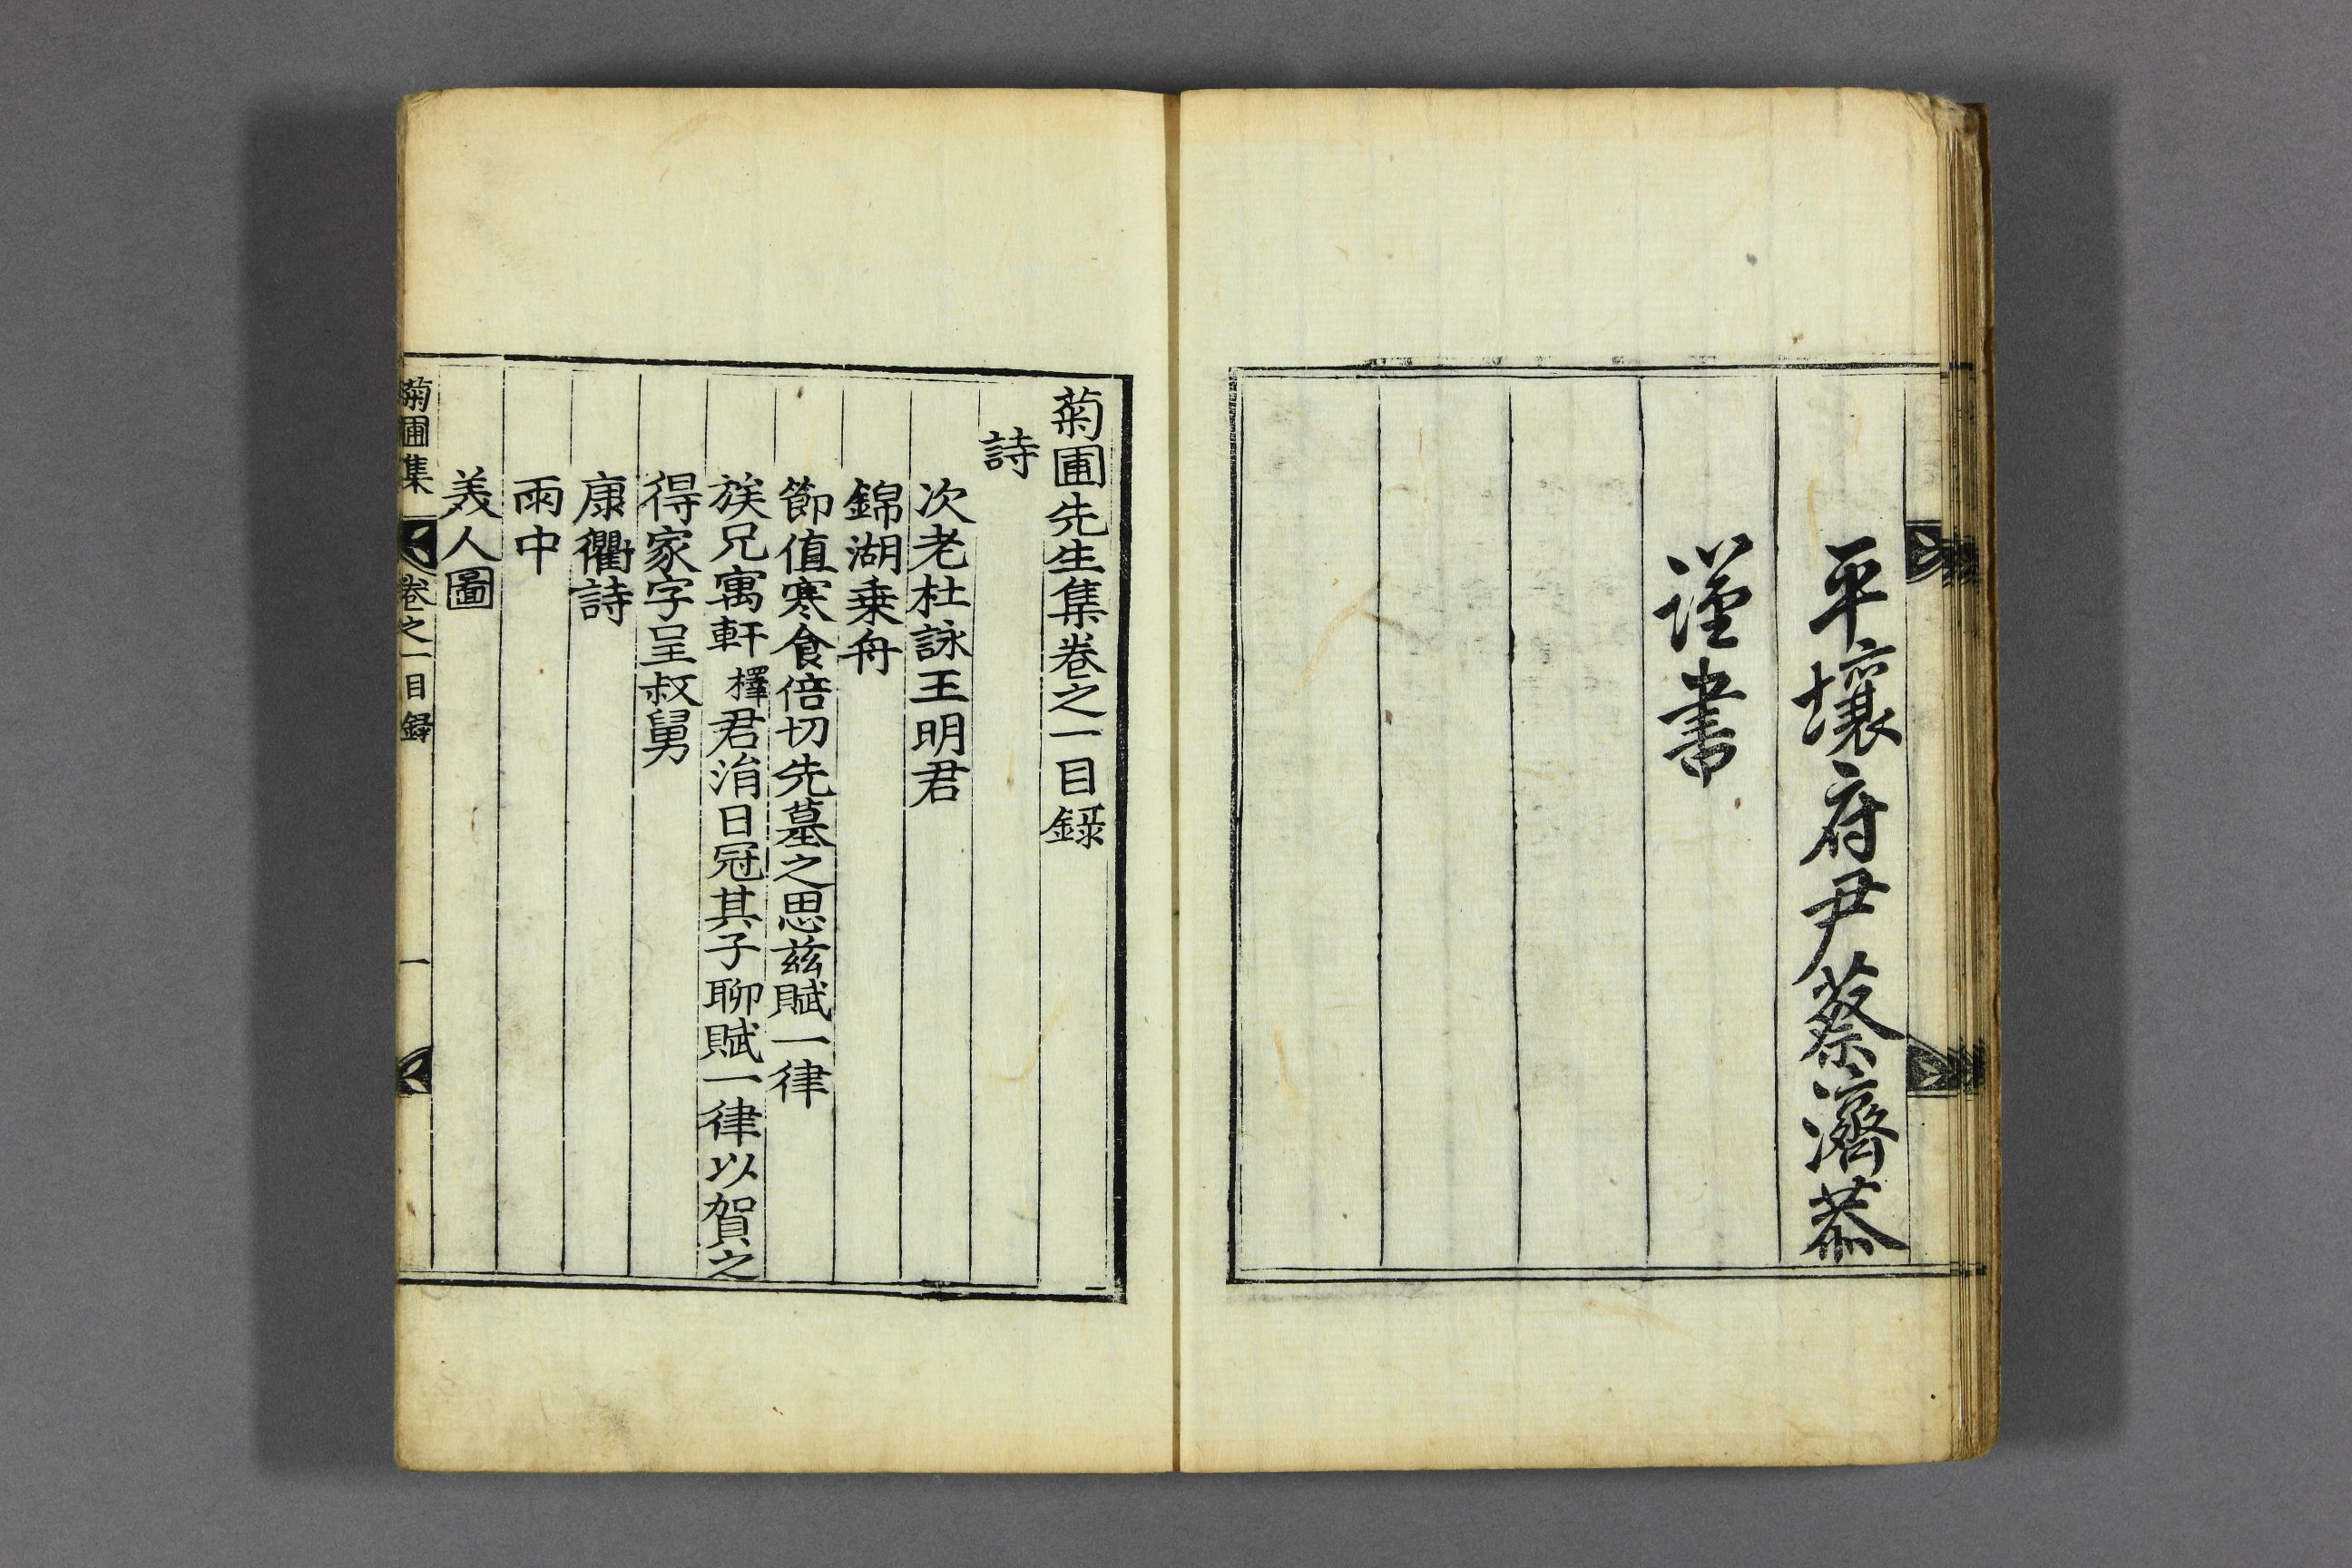 平壤府尹蔡濟恭
謹書
菊圃先生集卷之一目錄
詩
次老杜詠王明君
錦湖乗舟
節值寒食倍切先墓之思茲賦一律
族兄寓軒檡君涓日冠其子聊賦一律以賀之
得家字呈叔舅
康衢詩
雨中
美人圖
菊圃集 卷之一目録 一